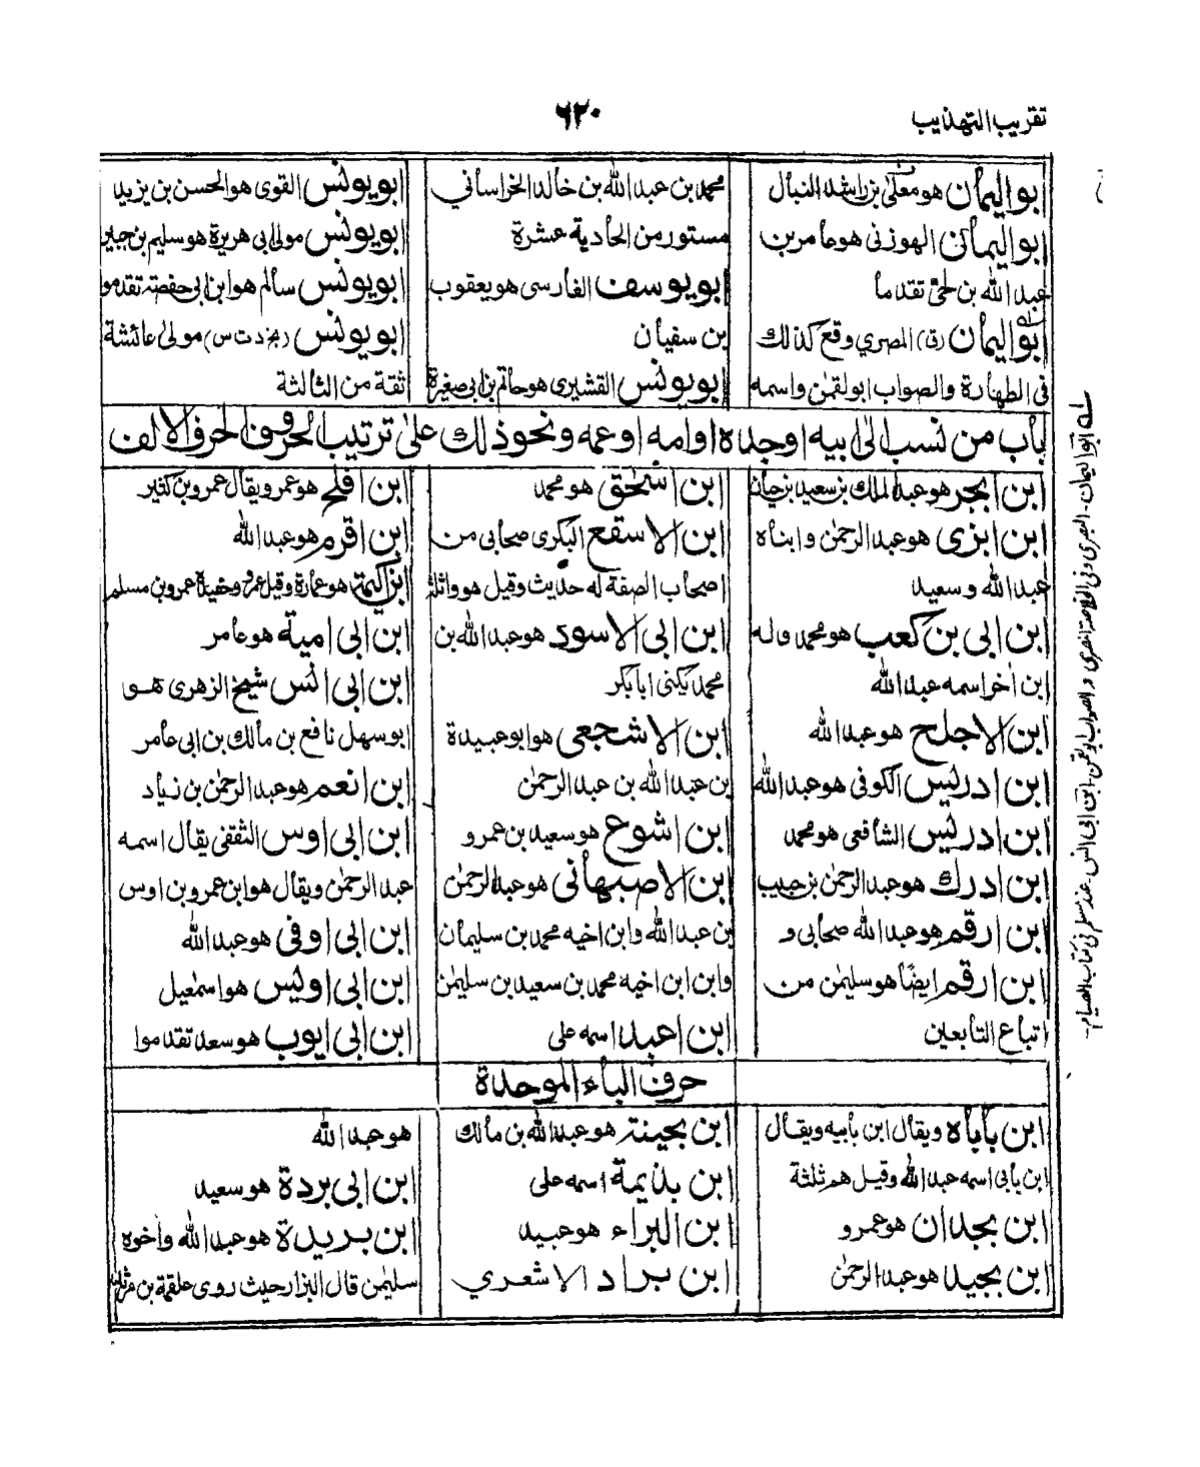 تقريب التهذيب
٦٢٠
ابو اليمان هو معلى بن راشد النبال
ابو اليمان الهوزنى هو عامر بن
عبد الله بن لحىّ تقدما
ابو اليمان (ق) المصري وقع كذلك
فى الطهارة والصواب ابو لقمٰن واسمه
محمد بن عبد الله بن خالد الخراساني
مستور من الحادية عشرة
ابو يوسف الفارسى هو يعقوب
بن سفيان
ابو يونس القشيرى هو حاتم بن ابى صغيرة
ابو يونس القوى هو الحسن بن يزيد
ابو يونس مولى ابى هريرة هو سليم بن جبير
ابو يونس سالم هو ابن ابى حفصة تقدموا
ابو يونس (بخ د ت س) مولى عائشة
ثقة من الثالثة
باب من نسب الى ابيه او جده او امه او عمه و نحو ذلك على ترتيب الحروف الحرف الالف
ابن ابجر هو عبد الملك بن سعيد بن حيان
ابن ابزى هو عبد الرحمٰن و ابناه
عبد الله و سعيد
ابن ابى بن كعب هو محمد و له
ابن اخر اسمه عبد الله
ابن الاجلح هو عبد الله
ابن ادريس الكوفى هو عبد الله
ابن ادريس الشافعى هو محمد
ابن ادرك هو عبد الرحمٰن بن حبيب
ابن ارقم هو عبد الله صحابى و
ابن ارقم ايضًا هو سليمٰن من
اتباع التابعين
ابن اسحٰق هو محمد
ابن الاسقع البكرى صحابى من
اصحاب الصفة له حديث وقيل هو واثلة
ابن ابى الاسود هو عبد الله بن
محمد يكنى ابا بكر
ابن الاشجعى هو ابو عبيدة
بن عبد الله بن عبد الرحمٰن
ابن اشوع هو سعيد بن عمرو
ابن الاصبهانى هو عبد الرحمٰن
بن عبد الله وابن اخيه محمد بن سليمان
وابن ابن اخيه محمد بن سعيد بن سليمٰن
ابن اعبد اسمه على
ابن افلح هو عمر ويقال عمرو بن كثير
ابن اقرم هو عبد الله
ابن اكيمة هو عمارة وقيل عمرو وحفيده عمرو بن مسلم
ابن ابى امية هو عامر
ابن ابى انس شيخ الزهرى هو
ابو سهل نافع بن مالك بن ابى عامر
ابن انعم هو عبد الرحمٰن بن زياد
ابن ابى اوس الثقفى يقال اسمه
عبد الرحمٰن ويقال هو ابن عمرو بن اوس
ابن ابى اوفى هو عبد الله
ابن ابى اويس هو اسمٰعيل
ابن ابى ايوب هو سعد تقدموا
حرف الباء الموحدة
ابن باباه ويقال ابن بابيه ويقال
ابن بابى اسمه عبد الله وقيل هم ثلثة
ابن بجدان هو عمرو
ابن بجيد هو عبد الرحمٰن
ابن بحينة هو عبد الله بن مالك
ابن بذيمة اسمه على
ابن البراء هو عبيد
ابن براد الاشعري
هو عبد الله
ابن ابى بردة هو سعيد
ابن بريدة هو عبد الله واخوه
سليمٰن قال البزار حيث روى علقمة بن مرثد
له ابو اليمان - البصرى وفى الخلاصة المصرى و الصواب ابو لقمن - ابن ابى انس - عند مسلم فى كتاب الصيام -